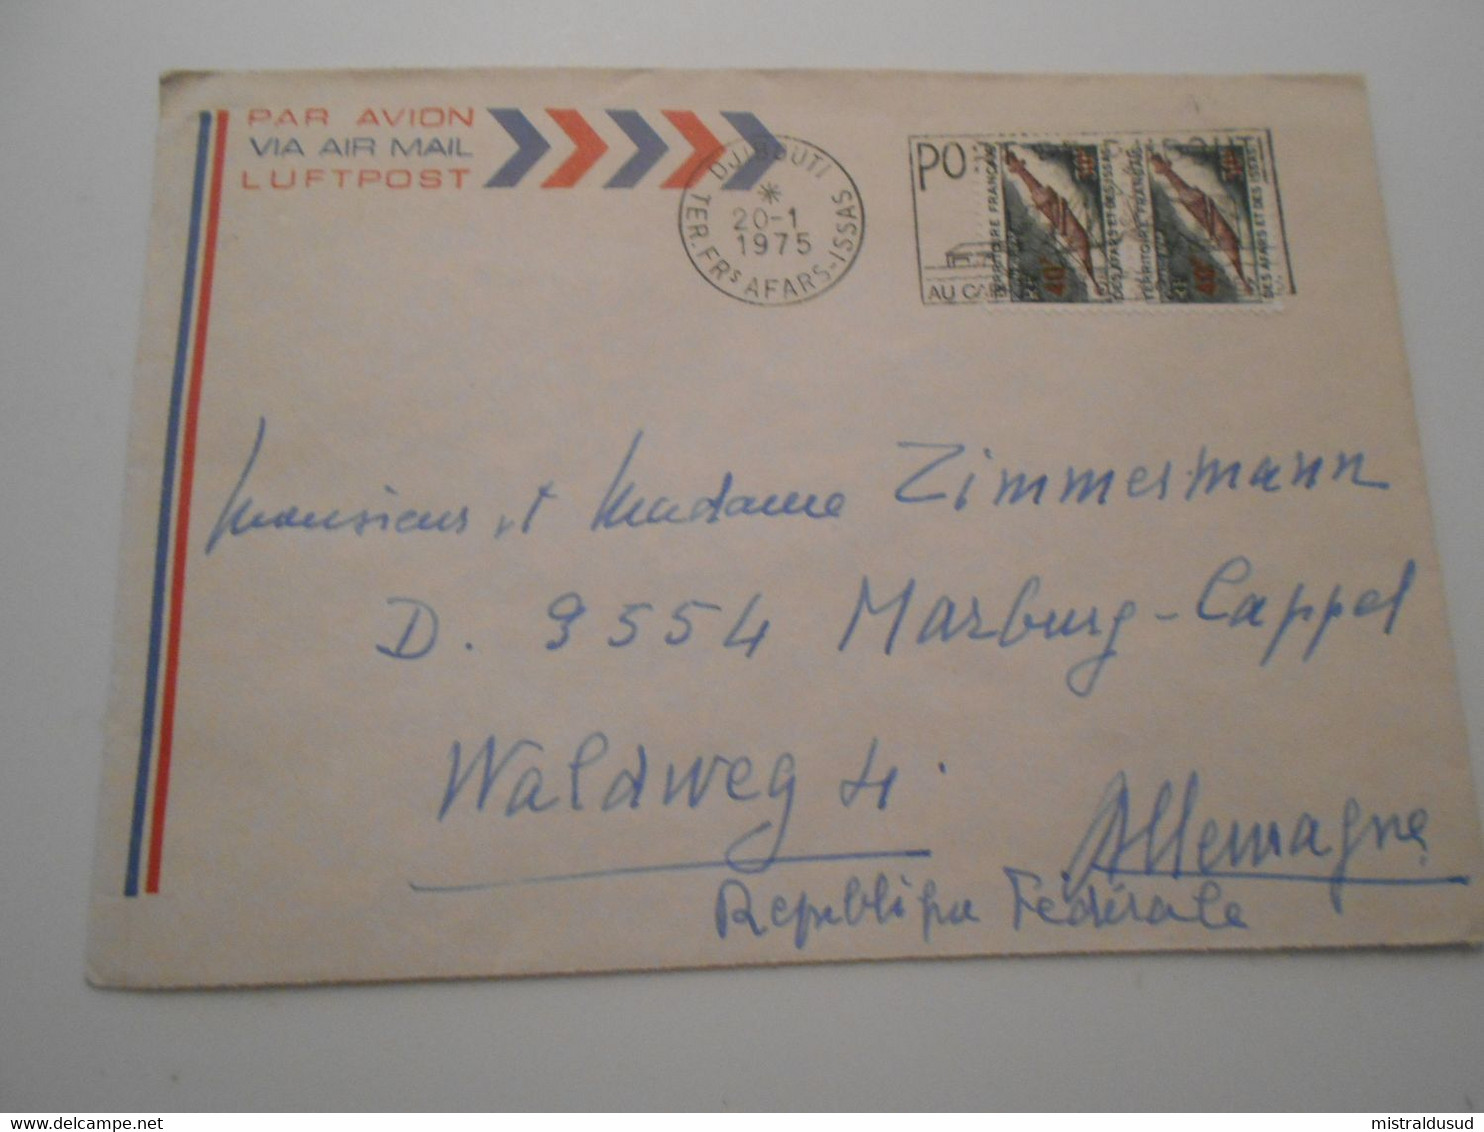 PAR AVION
VIA AIR MAIL
LUFTPOST
DJIBOUTI
20-1
1975
TER.FRs AFARS-ISSAS
PO
AU
TERRITOIRE FRANÇAIS
DES AFARS ET DES ISSAS
40F
TERRITOIRE FRANÇAIS
DES AFARS ET DES ISSAS
40F
Monsieur et Madame Zimmermann
D. 3554 Marburg-Cappel
Waldweg 4.
Allemagne
Republique Fédérale
mistraldusud